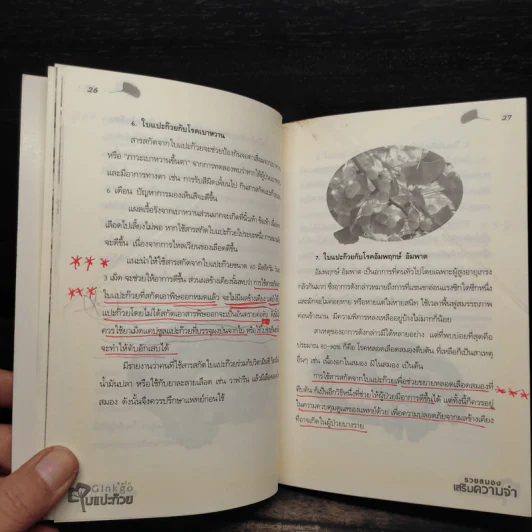 26
6. ใบแปะก๊วยกับโรคเบาหวาน
สารสกัดจากใบแปะก๊วยจะช่วยป้องกันจอตาเสื่อม
หรือ "ภาวะเบาหวานขึ้นตา" จากการทดลองพบว่าหากให้ผู้ป่วย
และมีอาการทางตา เช่น การรับสีผิดเพี้ยนไป กินสารสกัดใบแปะก๊วย
6 เดือน ปัญหาการมองเห็นสีจะดีขึ้น
แผลเรื้อรังจากเบาหวานส่วนมากจะเกิดที่นิ้วเท้า ข้อเท้า
เลือดไปเลี้ยงไม่พอ หากใช้สารสกัดใบแปะก๊วยไประยะหนึ่ง
จะดีขึ้น เนื่องจากการไหลเวียนของเลือดดีขึ้น
แนะนำให้ใช้สารสกัดจากใบแปะก๊วยขนาด 40 มิลลิกรัม
3 เม็ด จะช่วยให้อาการดีขึ้น ส่วนผลข้างเคียงนั้นพบว่า การใช้สารสกัด
ใบแปะก๊วยที่สกัดเอาพิษออกหมดแล้ว จะไม่มีผลข้างเคียง แต่
แปะก๊วยโดยไม่ได้สกัดเอาสารพิษออกจะเป็นอันตรายต่อตับ
ควรใช้ยาเม็ดแคปซูลแปะก๊วยที่บรรจุผงป่น
จะทำให้ตับอักเสบได้
มีรายงานว่าคนที่ใช้สารสกัดใบแปะก๊วยร่วมกับวิตามินอี
น้ำมันปลา หรือใช้กับยาละลายเลือด เช่น วาฟาริน แล้วมีเลือด
สมอง ดังนั้นจึงควรปรึกษาแพทย์ก่อนใช้
Ginkgo
ใบแปะก๊วย
27
7. ใบแปะก๊วยกับโรคอัมพฤกษ์ อัมพาต
อัมพฤกษ์ อัมพาต เป็นอาการที่คนทั่วไปโดยเฉพาะผู้สูงอายุเกรง
กลัวกันมาก ซึ่งอาการดังกล่าวหมายถึงการที่แขนขาอ่อนแรงซีกใดซีกหนึ่ง
และมักจะไม่ค่อยหาย หรือหายแต่ไม่หายสนิท ใช้เวลาฟื้นฟูสมรรถภาพ
ค่อนข้างนาน มีความพิการหลงเหลืออยู่บ้างไม่มากก็น้อย
สาเหตุของอาการดังกล่าวมีได้หลายอย่าง แต่ที่พบบ่อยที่สุดคือ
ประมาณ 80-90% ก็คือ โรคหลอดเลือดสมองตีบตัน ที่เหลือก็เป็นสาเหตุ
อื่นๆ เช่น เนื้องอกในสมอง มีฝีในสมอง เป็นต้น
การใช้สารสกัดจากใบแปะก๊วยเพื่อช่วยขยายหลอดเลือดสมองที่
ตีบตัน ก็เป็นอีกวิธีหนึ่งที่ช่วยให้ผู้ป่วยมีอาการดีขึ้นได้ แต่ทั้งนี้ก็ควรอยู่
ในความควบคุมดูแลของแพทย์ด้วย เพื่อความปลอดภัยจากผลข้างเคียง
ที่อาจเกิดในผู้ป่วยบางราย
รวยสมอง
เสริมความจำ